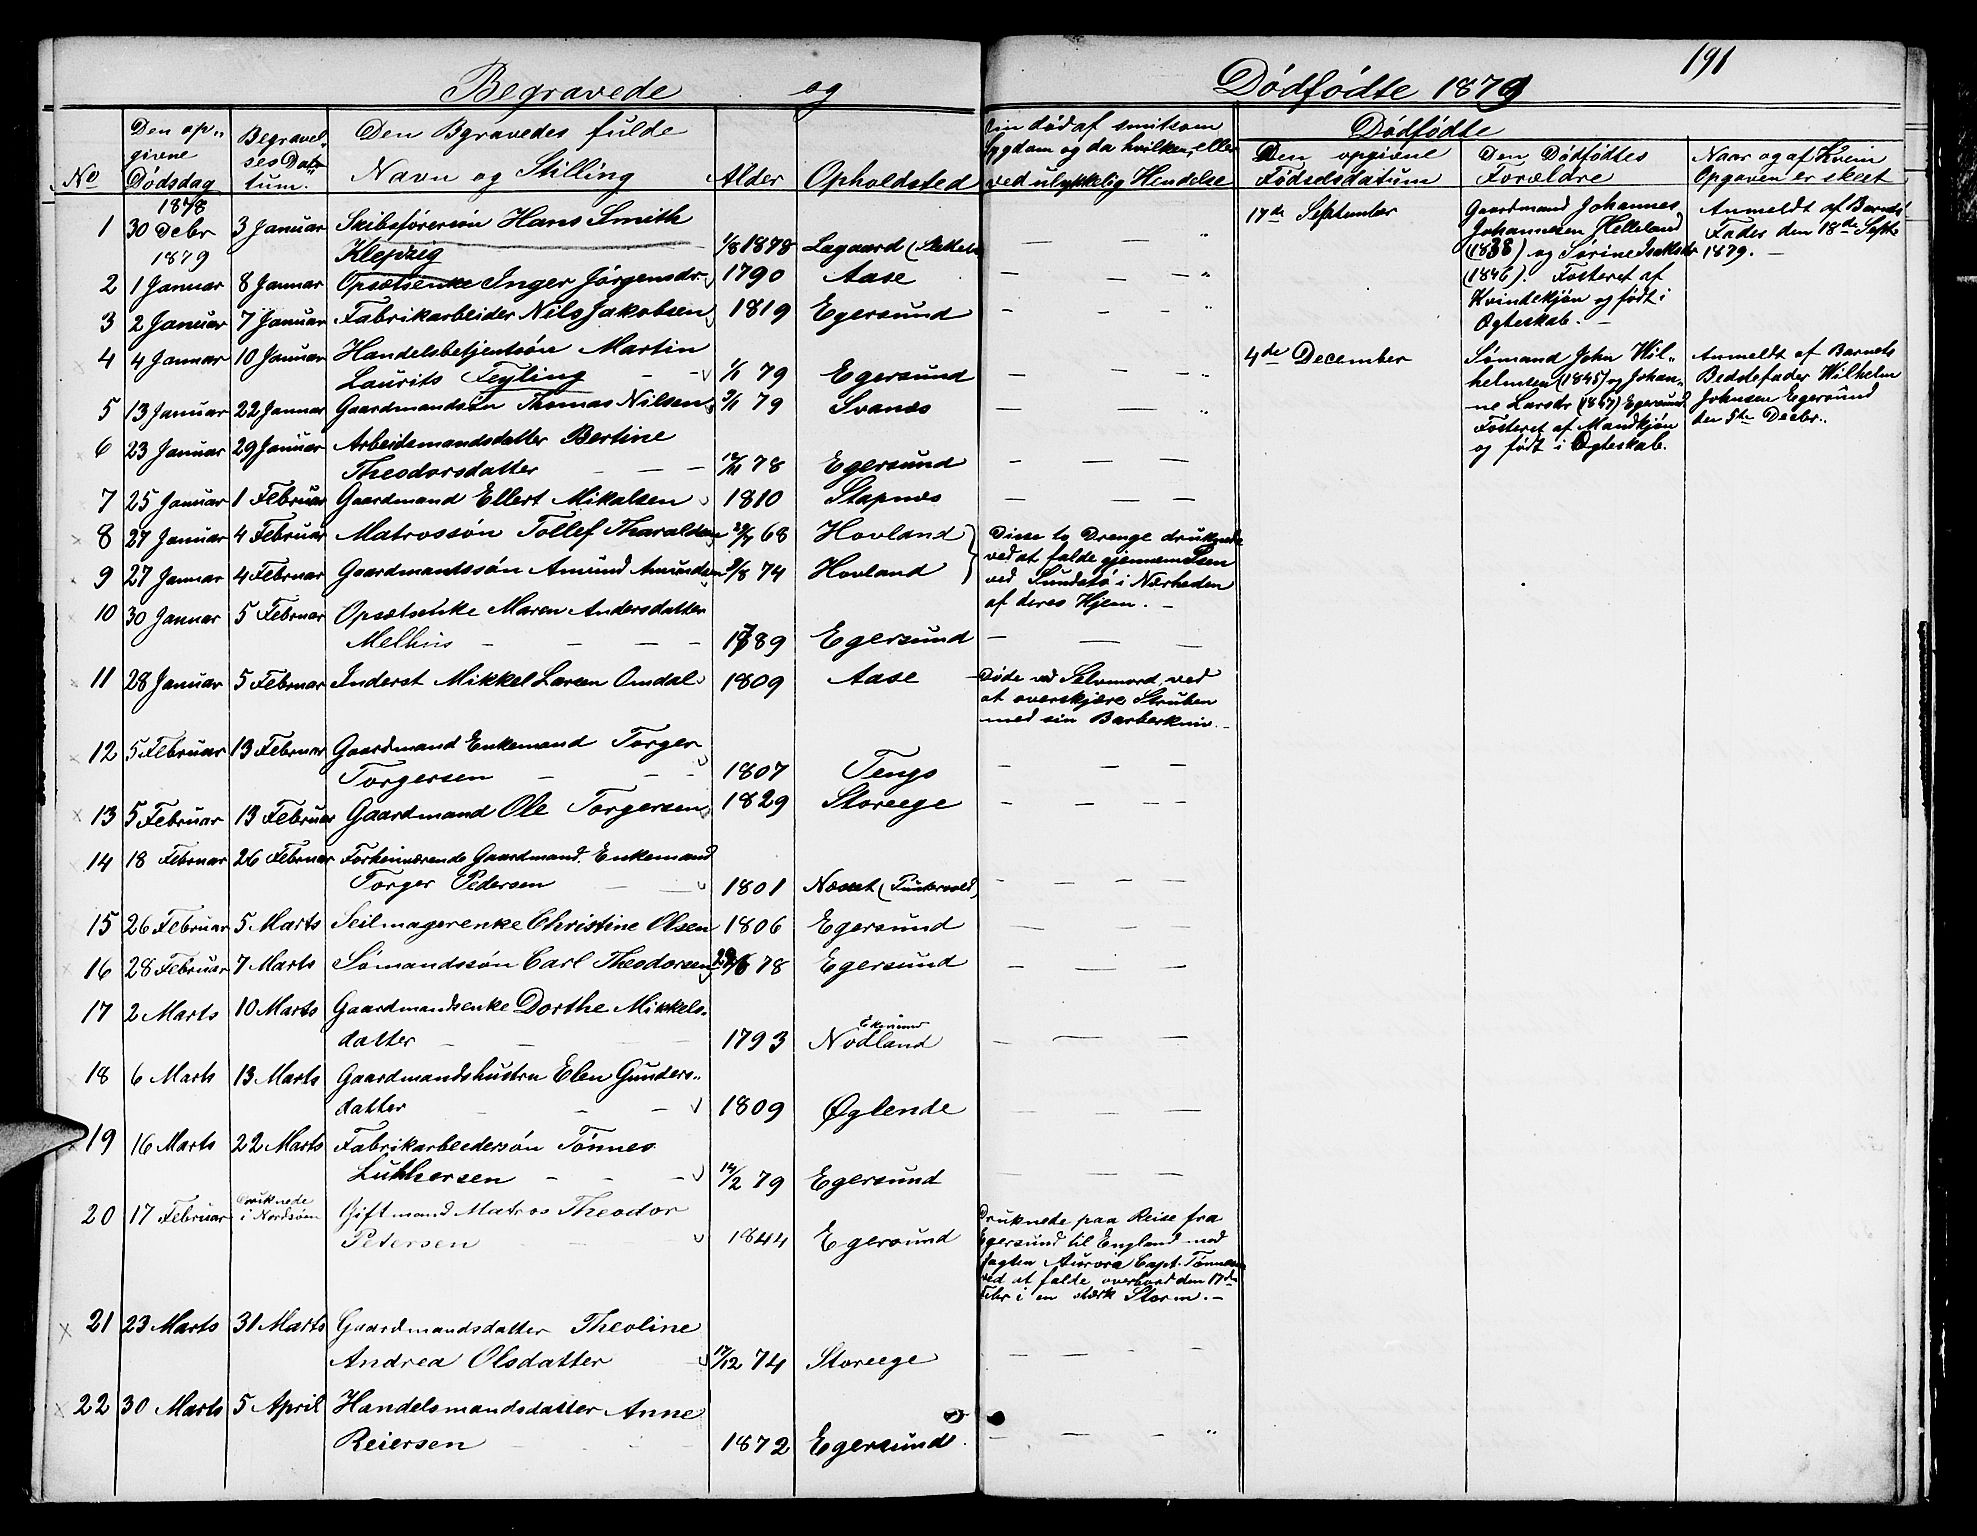 191
Begravede og Dødfødte 1879
No
Den op-
givne
Dødsdag
Begravel-
ses Da-
tum.
Den Bgravedes fulde
Navn og Stilling
Alder
Opholdsted
død af smitsom
Sygdom og da hvilken, eller
ved ulykkelig Hendelse
Dødfødte
Den opgivne
Fødselsdatum
Den Dødfødtes
Forældre
Naar og af Hvem
Opgaven er skeet
1878
1 30 Decbr 3 Januar Skibsførersøn Hans Smith
Klepzig 1/8 1878 Lagaard
1879
2 1 Januar 8 Januar Opsætsenke Inger Jørgensdr. 1790 Aase
3 2 Januar 7 Januar Fabrikarbeider Nils Jakobsen 1819 Egersund
4 4 Januar 10 Januar Handelsbetjentsøn Martin
Laurits Feyling 1/1 79 Egersund
5 13 Januar 22 Januar Gaardmandsøn Thomas Nilsen 3/1 79 Svanes
6 23 Januar 29 Januar Arbeidsmandsdatter Bertine
Theodorsdatter 78 Egersund
7 25 Januar 1 Februar Gaardmand Ellert Mikalsen 1810 Stapnes
8 27 Januar 4 Februar Matrossøn Tollef Tharaldsen 68 Hovland
9 27 Januar 4 Februar Gaardmandssøn Amund Amundsen 2/8 74 Hovland
Disse to Drenge druknede
ved at falde gjennem Isen
ved Sundstø i Nærheden
af deres Hjem.
10 30 Januar 5 Februar Opsætsenke Maren Andersdatter
Melhus 1789 Egersund
11 28 Januar 5 Februar Inderst Mikkel Larsen Omdal 1809 Aase
Døde ved Selvmord, ved
at overskjære Struben
med sin Barberkniv.
12 5 Februar 13 Februar Gaardmand Enkemand Torger
Torgersen 1807 Tengs
13 5 Februar 13 Februar Gaardmand Ole Torgersen 1829 Storeege
14 18 Februar 26 Februar Forhenværende Gaardmand. Enkemand
Torger Pedersen 1801 Næset (Puntervold)
15 26 Februar 5 Marts Seilmagerenke Christine Olsen 1806 Egersund
16 28 Februar 7 Marts Sømandssøn Carl Theodorsen 78 Egersund
17 2 Marts 10 Marts Gaardmandsenke Dorthe Mikkels-
datter 1793 Nodland
18 6 Marts 13 Marts Gaardmandshustru Elen Gunders-
datter 1809 Øglende
19 16 Marts 22 Marts Fabrikarbeidersøn Tønnes
Luthersen 14/2 79 Egersund
20 17 Februar Druknede
i Nordsøen Giftmand Matros Theodor
Petersen 1844 Egersund
Druknede paa Reise fra
Egersund til England med
Jagten Aurora Capt. Tønnesen
ved at falde overbord den 17de
Febr i en stærk Storm.
21 23 Marts 31 Marts Gaardmandsdatter Theoline
Andrea Olsdatter 17/12 74 Storeege
22 30 Marts 5 April Handelsmandsdatter Anne
Reiersen 1872 Egersund
17de September
Gaardmand Johannes
Johannesen Helleland
(1838) og Sørine Isaksdr
(1846). Fosteret af
Kvindekjøn og født i
Ægteskab.
Anmeldt af Barnets
Fader den 18de Septr
1879.
4de December
Sømand John Wil-
helmsen (1845) og Johan-
ne Larsdr (1847) Egersund
Fosteret af Mandkjøn
og født i Ægteskab.
Anmeldt af Barnets
Beddefader Wilhelm
Johnsen Egersund
den 5te Decbr.